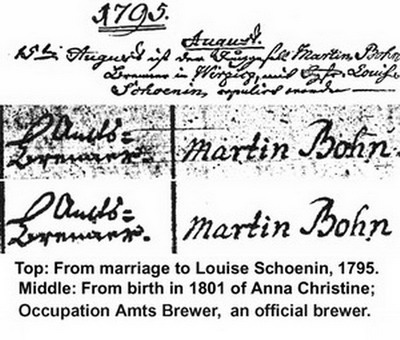 1795.
August.
15ten August ist der Junggesell Martin Bohn
Brenner in Virzig, mit Jgfr. Louise
Schoenin, copulirt worden
Amts= Martin Bohn.
Brenner.
Amts= Martin Bohn
Brenner.
Top: From marriage to Louise Schoenin, 1795.
Middle: From birth in 1801 of Anna Christine;
Occupation Amts Brewer, an official brewer.